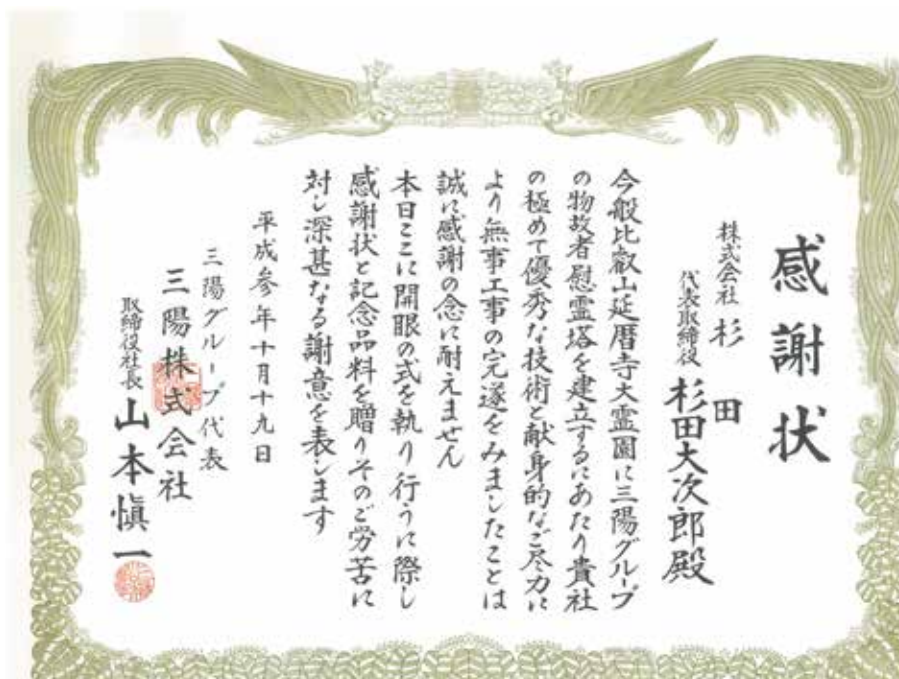 感謝状
株式会社 杉田
代表取締役 杉田大次郎殿
今般比叡山延暦寺大霊園に三陽グループ
の物故者慰霊塔を建立するにあたり貴社
の極めて優秀な技術と献身的なご尽力に
より無事工事の完遂をみましたことは
誠に感謝の念に耐えません
本日ここに開眼の式を執り行うに際し
感謝状と記念品料を贈りそのご労苦に
対し深甚なる謝意を表します
平成参年十月十九日
三陽グループ代表
三陽株式会社
取締役社長 山本愼一